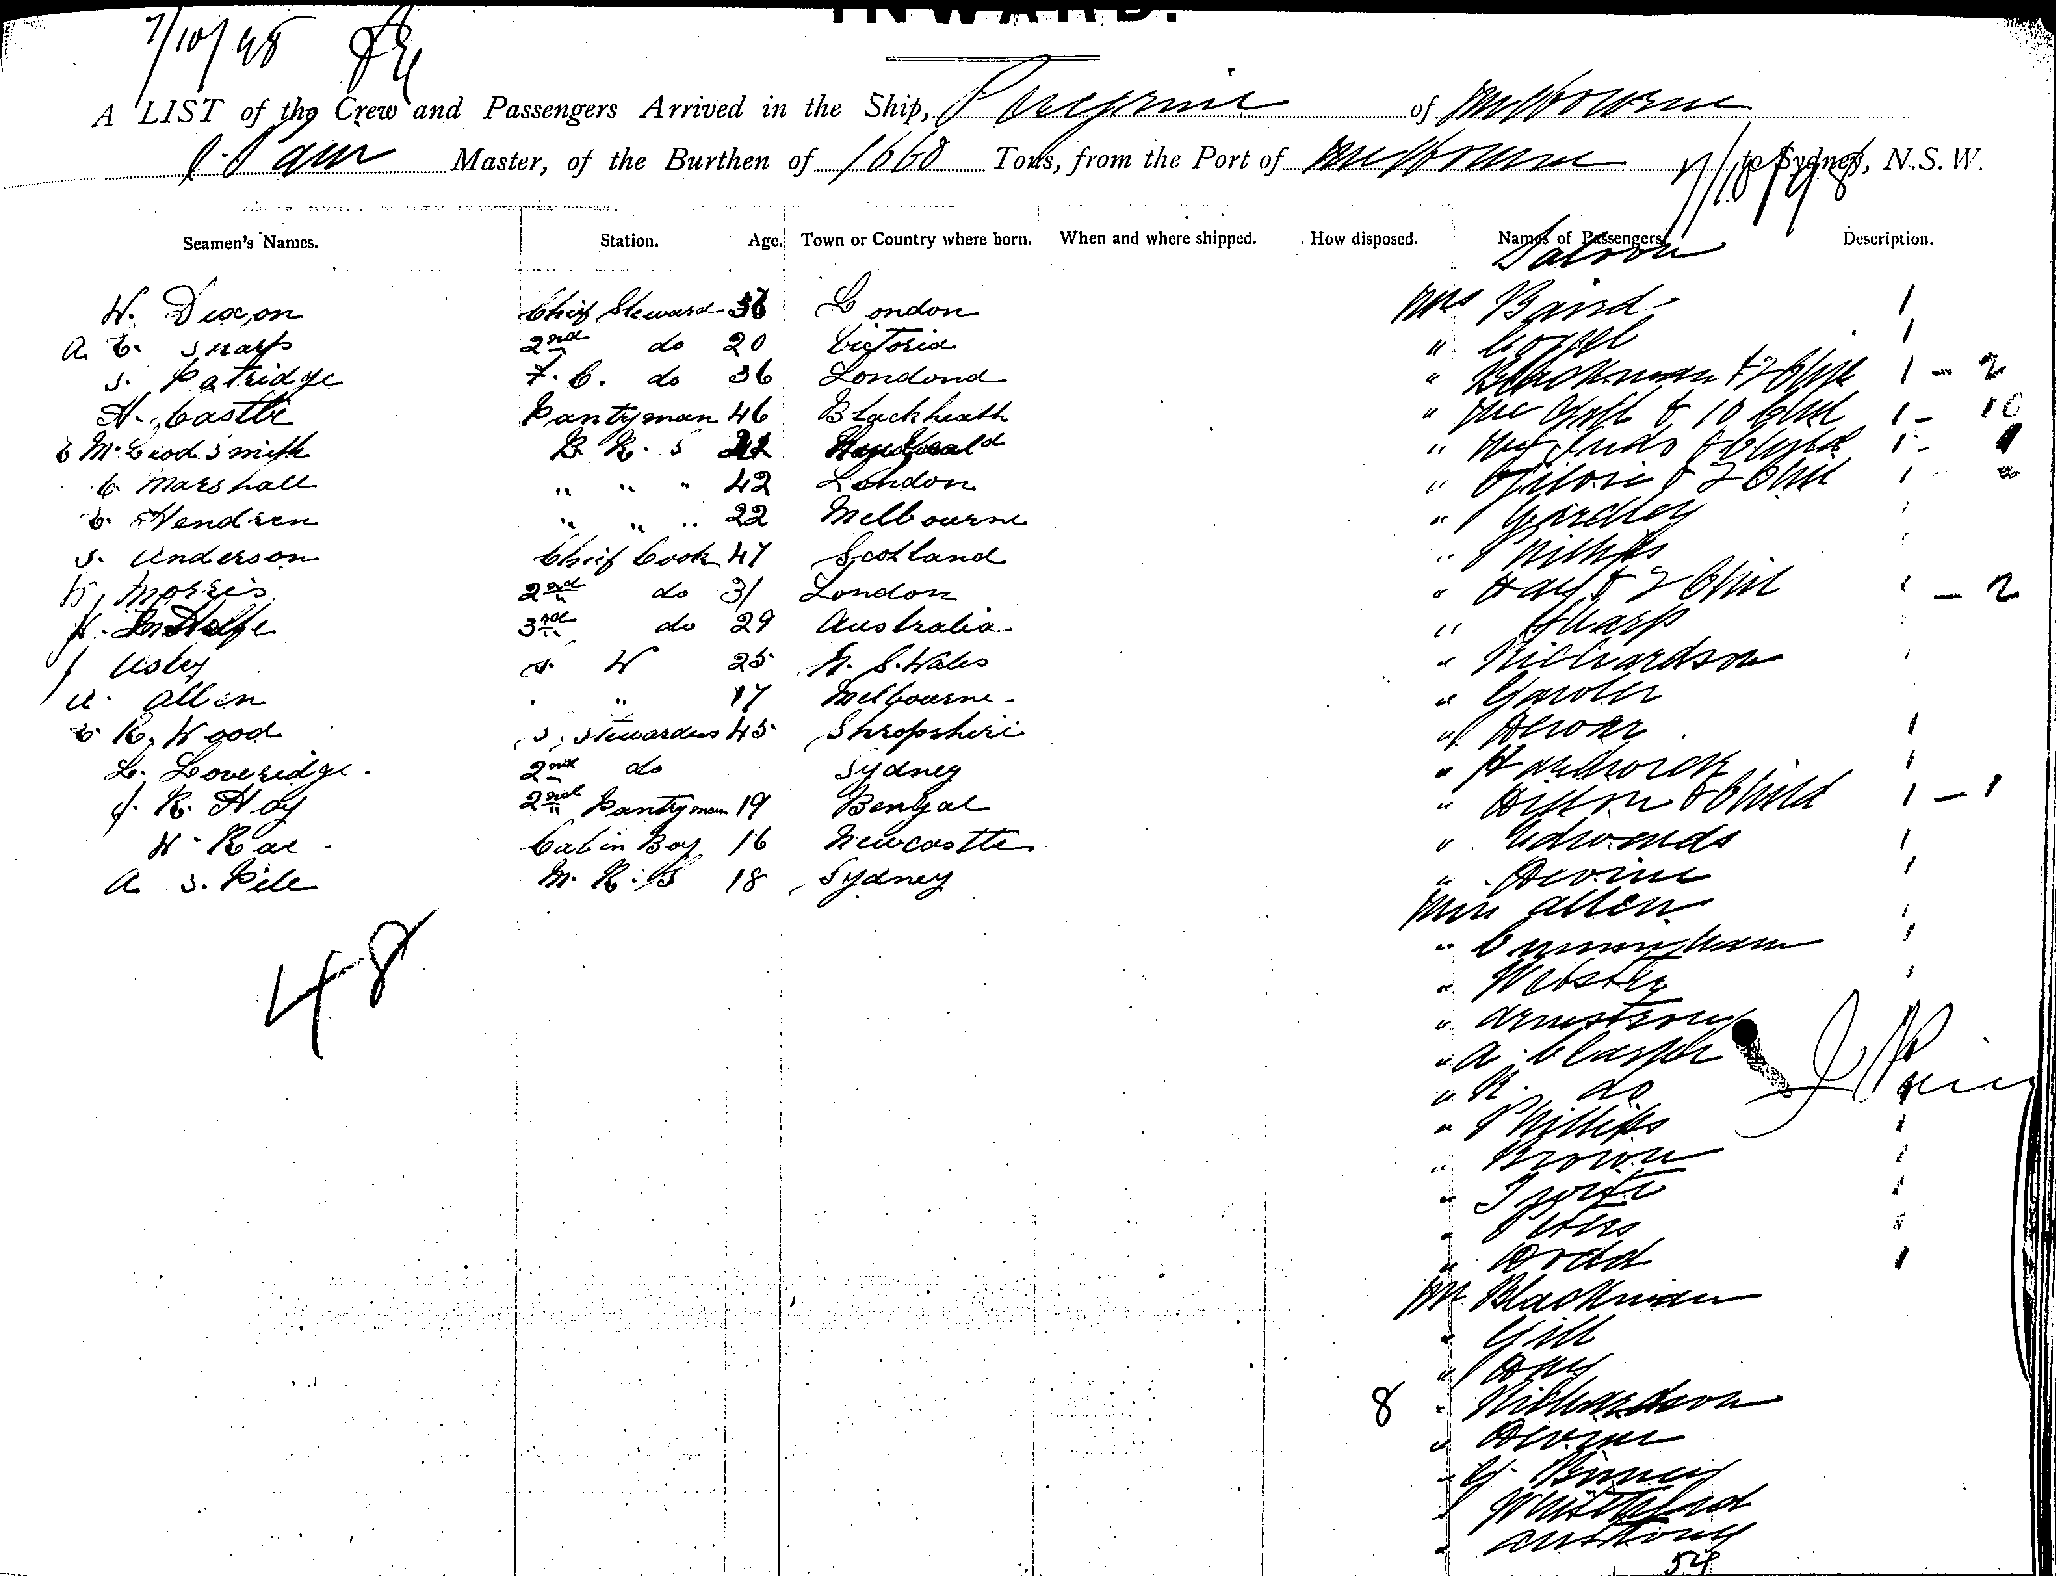 INWARD.
7/10/98
A LIST of the Crew and Passengers Arrived in the Ship, Peregrine of Melbourne
Master, of the Burthen of 1660 Tons, from the Port of Melbourne to Sydney, N.S.W.
7/10/98
Seamen's Names. Station. Age. Town or Country where born. When and where shipped. How disposed. Names of Passengers Description.
Saloon
W. Dixon Chief Steward 36 London Mrs Baird 1
A. E. Sharp 2nd do 20 Victoria " 1
S. Patridge F. C. do 36 Londond " Blackman & 2 Chil 1 - 2
H. Castle Pantryman 46 Blackheath " & 10 Chil 1 - 10
McLeod Smith B. R. S " & Child 1 - 1
C Marshall " " " 42 London " Ogilvie & 2 Chil 1 - 2
C. Hendren " " " 22 Melbourne " Yardley 1
S. Anderson Chief Cook 47 Scotland " Phillips
W. Morris 2nd do 31 London " Day & 2 Chil 1 - 2
3rd do 29 Australia " Sharp
J Usley S. W 25 N. S. Wales " Richardson
A. Allen " 17 Melbourne "
E R. Wood S. Stewardess 45 Shropshire " Dewar 1
L. Loveridge 2nd do Sydney " 1
J. R. Hoy 2nd Pantryman 19 Bengal " Dillon & Child 1 - 1
W. Rae Cabin Boy 16 Newcastle " Edwards 1
A S. Pile M. R. S 18 Sydney " Devine 1
Miss Allen 1
48
" Cunningham 1
" Webster 1
" Armstrong
" A. Clasper
" R. do
" Phillips 1
" Brown 1
" 1
" Peters 1
" Dodd 1
Mr Blackman
" Gill
" Day
8 " Richardson
" Devine
" G. Binney
" Whitehead
" Armstrong
54